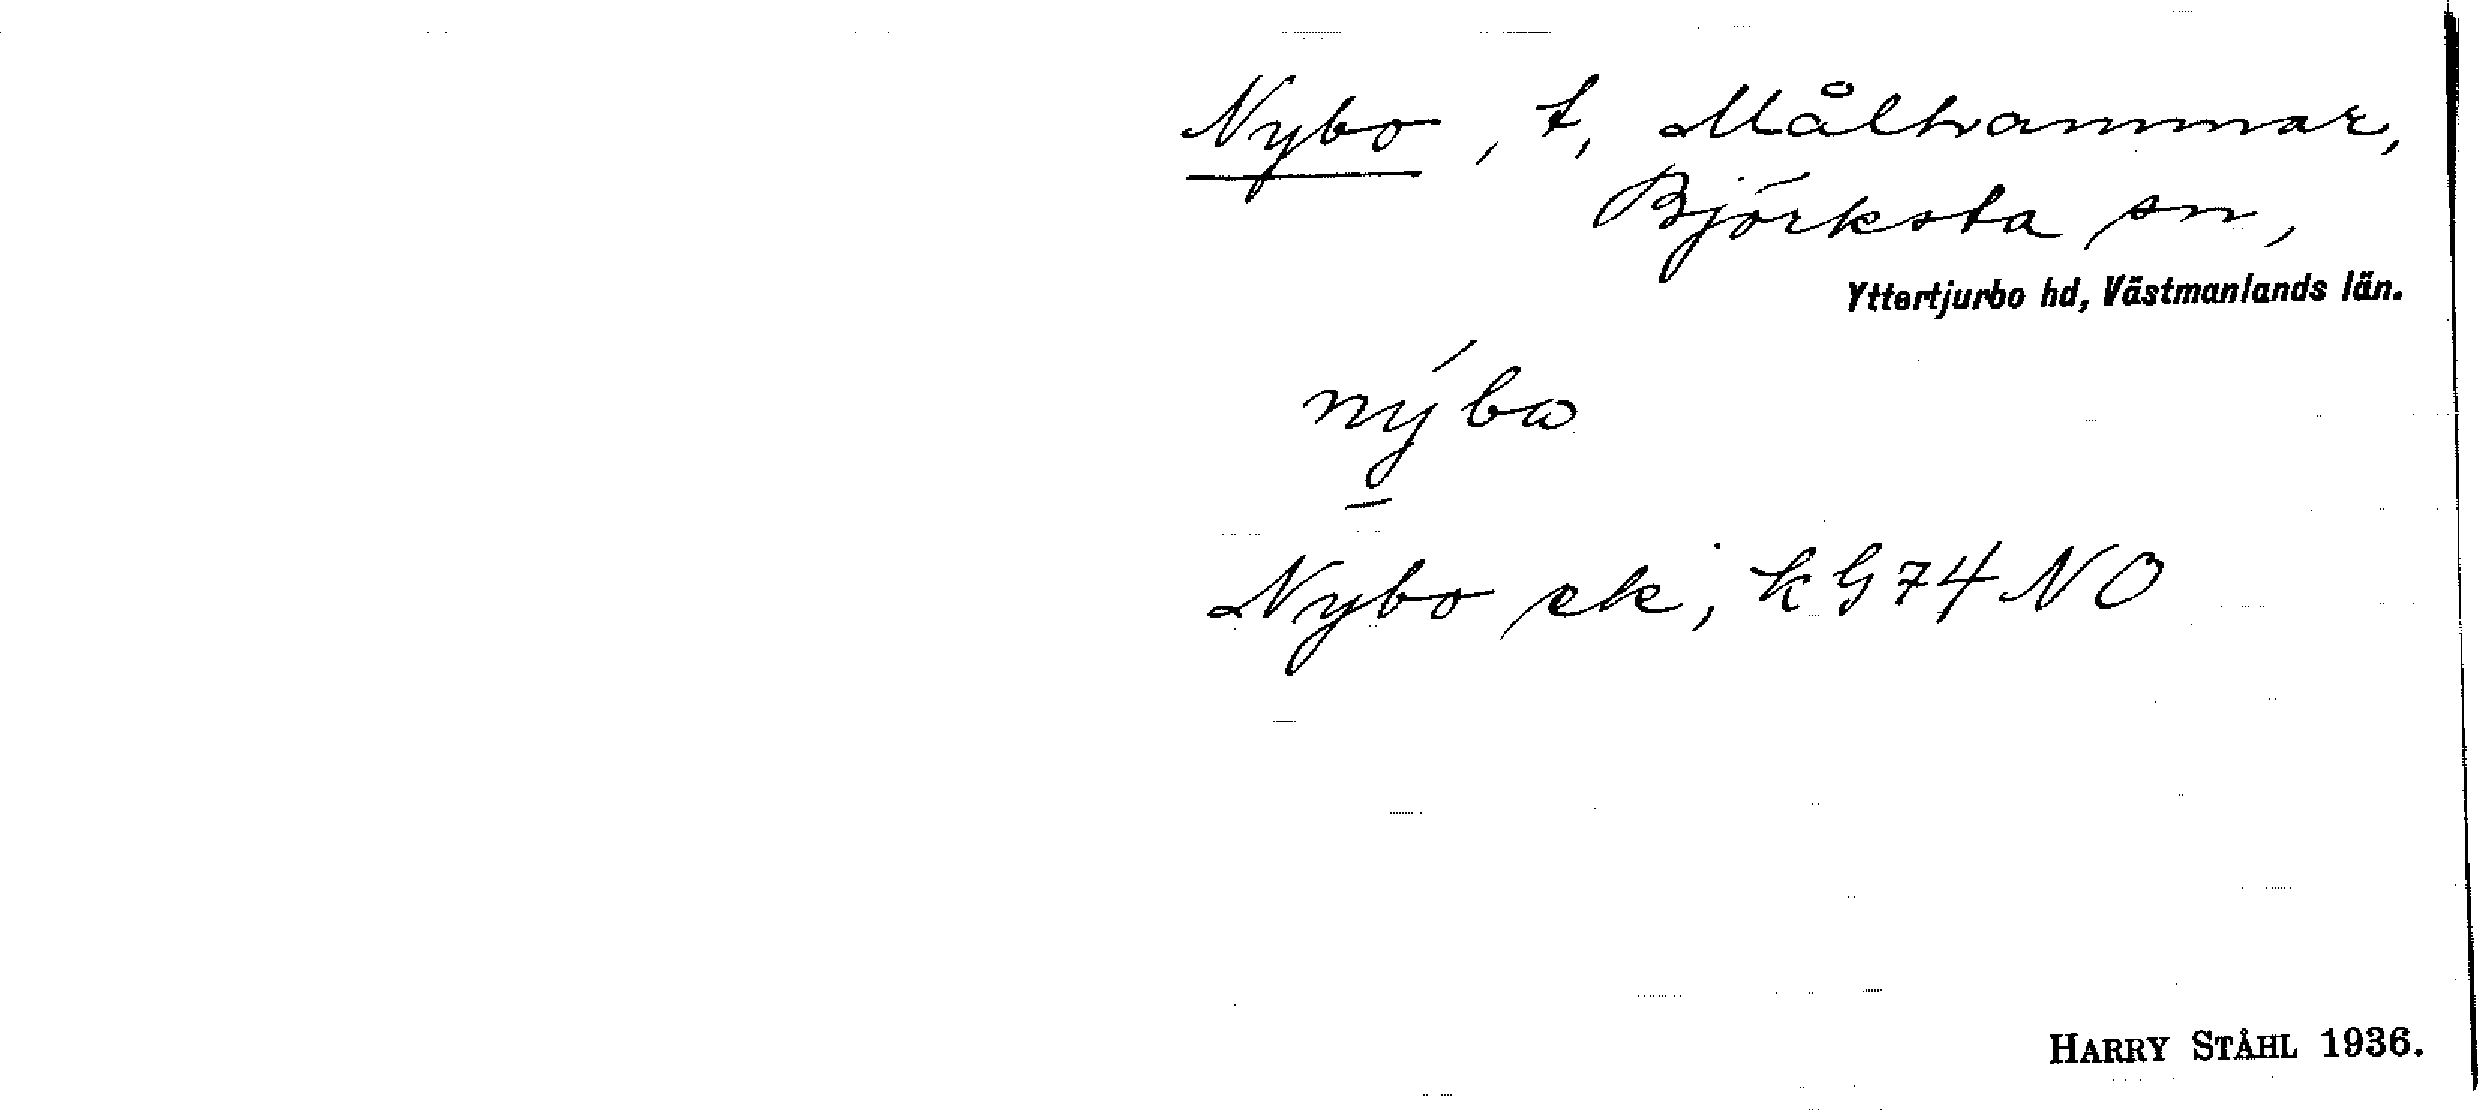 Nybo, t, Målhammar,
Björksta sn,
Yttertjurbo hd, Västmanlands län.
nýbω
Nybo ek, kG 74 NO
HARRY STÅHL 1936.